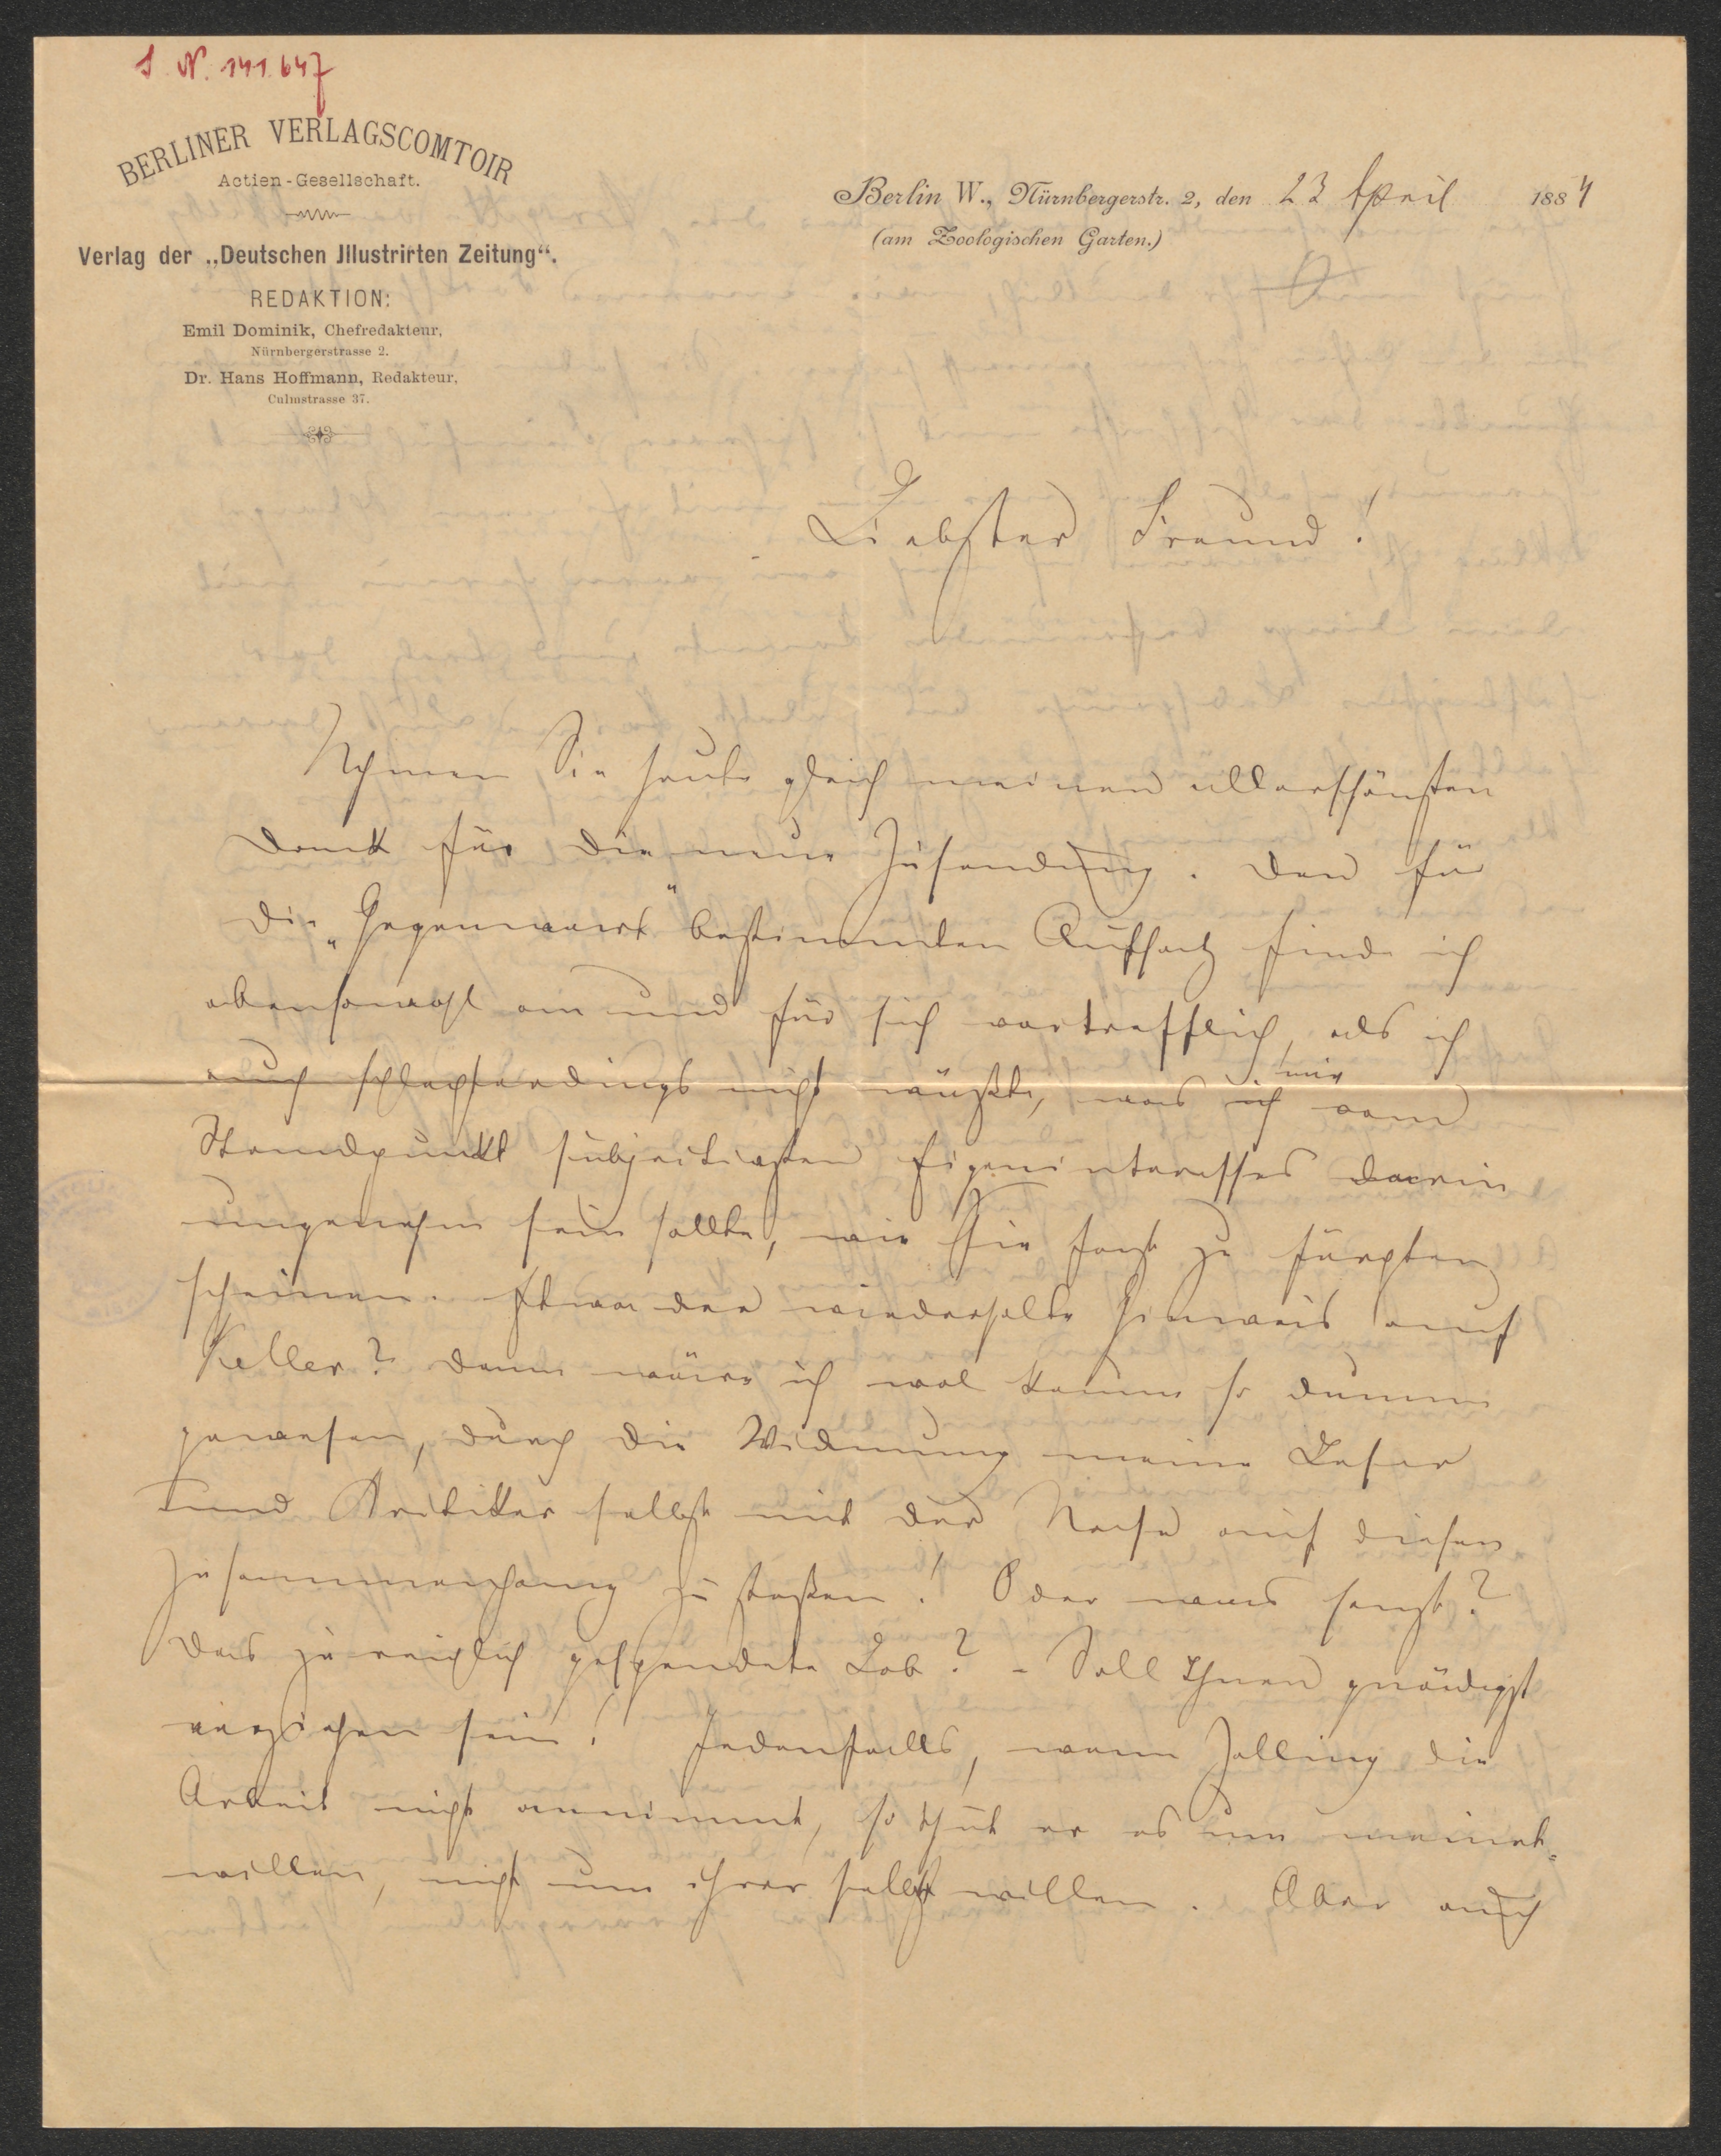 I. N. 141.647
BERLINER VERLAGSCOMTOIR
Actien-Gesellschaft.
Verlag der „Deutschen Jllustrirten Zeitung“.
REDAKTION:
Emil Dominik, Chefredakteur,
Nürnbergerstrasse 2.
Dr. Hans Hoffmann, Redakteur,
Culmstrasse 37.
Berlin W., Nürnbergerstr. 2, den 23 April 1884
(am Zoologischen Garten.)
Liebster Freund!
Nehmen Sie heute gleich meinen allerschönsten
Dank für die neue Zusendung. Den für
die „Gegenwart“ bestimmten Aufsatz finde ich
ebensowohl an und für sich vortrefflich, als ich
auch schlechterdings nicht wüßte, was mir vom
Standpunkt subjectivsten Eigeninteresses darin
unangenehm sein sollte, wie Sie fast zu fürchten
scheinen. Etwa der wiederholte Hinweis auf
Keller? Dann wäre ich wol kaum so dumm
gewesen, durch die Widmung meine Leser
und Kritiker selbst mit der Nase auf diesen
Zusammenhang zu stoßen! Oder was sonst?
Das zu reichlich gespendete Lob? – Soll Ihnen gnädigst
verziehen sein! Jedenfalls, wenn Zolling die
Arbeit nicht annimmt, so thut er es um meinet-
willen, nicht um ihrer selbst willen. Aber auch